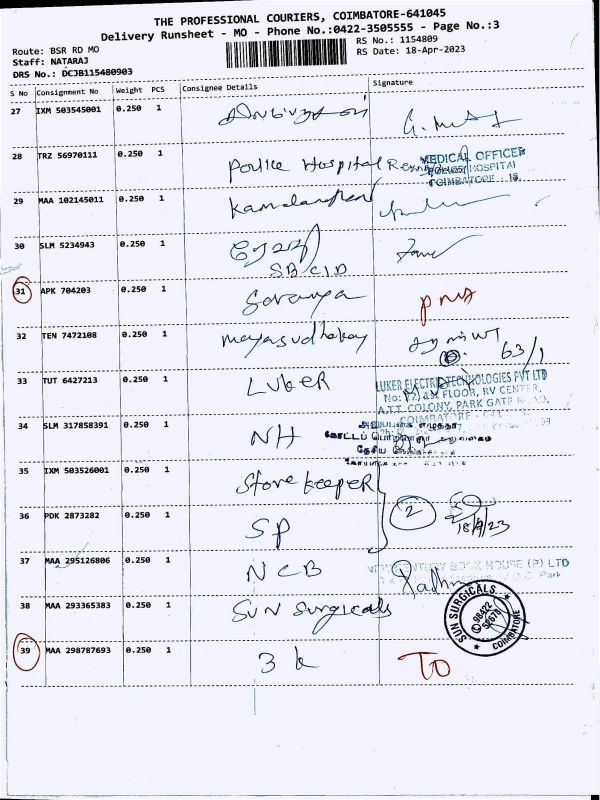 THE PROFESSIONAL COURIERS, COIMBATORE-641045
Delivery Runsheet - MO - Phone No.:0422-3505555 - Page No.:3
Route: BSR RD MO
Staff: NATARAJ
DRS No.: DCJB115480903
RS No.: 1154809
RS Date: 18-Apr-2023
S No Consignment No Weight PCS Consignee Details Signature
27 IXM 503545001 0.250 1
28 TRZ 56970111 0.250 1 Police Hospital
MEDICAL OFFICER
POLICE HOSPITAL
COIMBATORE - 18
29 MAA 102145011 0.250 1
30 SLM 5234943 0.250 1
SB CID
31 APK 704203 0.250 1 Saranya
32 TEN 7472108 0.250 1 mayasudhakay
63/1
33 TUT 6427213 0.250 1 LUKER
LUKER ELECTRIC TECHNOLOGIES PVT LTD
No: 1ST FLOOR, RV CENTER,
A.T.T. COLONY, PARK GATE
COIMBATORE
34 SLM 317858391 0.250 1 NH
35 IXM 503526001 0.250 1 Store keepeR
36 PDK 2873282 0.250 1 SP
2 18/4/23
37 MAA 295126806 0.250 1 NCB
NEW CENTURY BOOK HOUSE (P) LTD
Park
Padhma
38 MAA 293365383 0.250 1 SUN Surgicals
SUN SURGICALS
98422
COIMBATORE
39 MAA 298787693 0.250 1 3 k TO